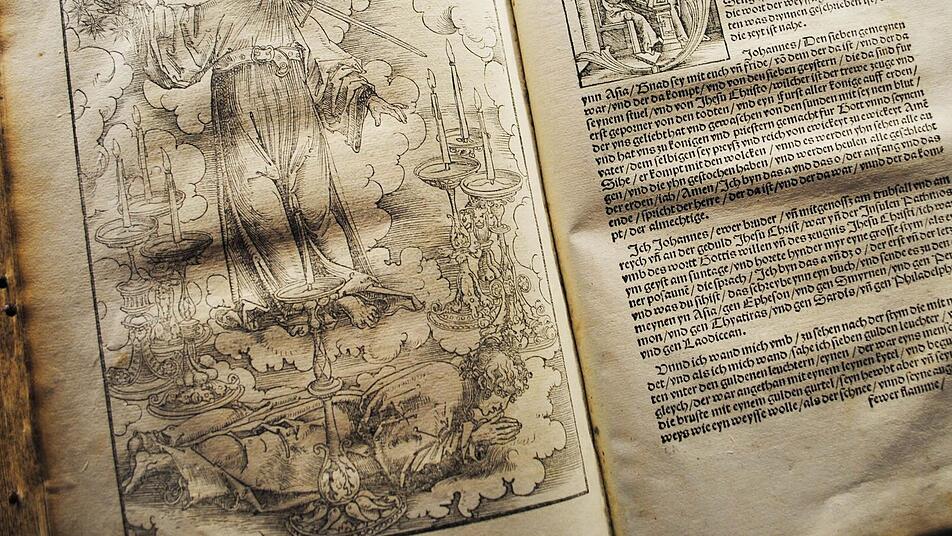 die wort der weyssag
ten was drynnen geschrieben ist/
die zeyt ist nahe.
Johannes/ Den sieben gemeynen
ynn Asia/ Gnad sey mit euch vñ fride/ võ dem der da ist/ vnd der da
war/ vnd der da kompt/ vnd von den sieben geystern/ die da sind fur
seynem stuel/ vnd von Jhesu Christo/ wilcher ist der trewe zeuge vnd
erst geporner von den todten/ vnd eyn Furst aller konige auff erden/
der vns geliebt hat vnd gewaschen von den sunden mit seynem blut/
vnd hat vns zu konigen vnd priestern gemacht fur Gott vnnd seynem
vater/ dem selbigen sey preysz vnd reich von ewickeyt zu ewickeyt Amẽ
Sihe/ er kompt mit den wolcken/ vnnd es werden yhn sehen alle au
gen/ vnd die yhn gestochen haben/ vnd werden heulen alle geschlecht
der erden/ jah/ Amen/ Ich byn das a vnd das o/ der anfang vnd das
ende/ spricht der herre/ der da ist/ vnd der da war/ vnnd der da kom
pt/ der almechtige.
Ich Johannes/ ewer bruder/ vñ mitgenoss am trubsall vnd am
reych vñ an der gedult Jhesu Christ/ war yñ der Insulen Pathm
vmb des wort Gottis willen vñ des zeugnis Jhesu Christi/ ich war
ym geyst am suntage/ vnd horete hynder myr eyne grosse stym/ als
ner posaunẽ/ die sprach/ Ich byn das a vñ dz o/ der erst vñ der letz
vnd was du sihist/ das schreybe ynn eyn buch/ vnd sende es zu den
meynen yn Asia/ gen Epheson/ vnd gen Smyrnen/ vnd gen Per
mon/ vnd gen Thyatiras/ vnd gen Sardis/ vñ gen Philadelph
vnd gen Laodicean.
Vnnd ich wand mich vmb/ zu sehen nach der stym die mit
det/ vnd als ich mich wand/ sahe ich sieben gulden leuchter/
ten vnter den guldenen leuchtern/ eynen/ der war eyns men
gleych/ der war angethan mit eynem leynen kytel/ vnd beg
die bruste mit eynem gulden gurtel/ seyn hewbt aber vnd
weys wie eyn weysse wolle/ als der schnee/ vnnd seyne
fewer flamme/